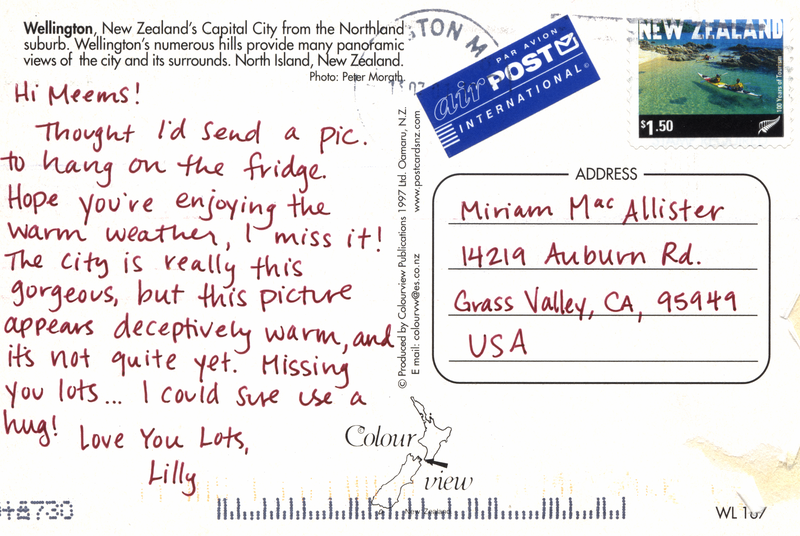 Wellington, New Zealand's Capital City from the Northland
suburb. Wellington's numerous hills provide many panoramic
views of the city and its surrounds. North Island, New Zealand.
Photo: Peter Morath
Hi Meems!
Thought I'd send a pic.
to hang on the fridge.
Hope you're enjoying the
warm weather, I miss it!
The city is really this
gorgeous, but this picture
appears deceptively warm, and
it's not quite yet. Missing
you lots... I could sure use a
hug!
Love You Lots,
Lilly
© Produced by Colourview Publications 1997 Ltd. Oamaru, N.Z.
E mail: colourvw@es.co.nz
www.postcardsnz.com
PAR AVION
air POST
INTERNATIONAL
NEW ZEALAND
100 Years of Tourism
$1.50
ADDRESS
Miriam MacAllister
14219 Auburn Rd.
Grass Valley, CA, 95949
USA
Colour
view
New Zealand
8730
WL 167